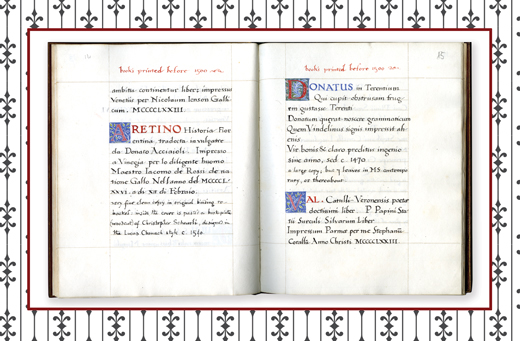 books printed before 1500
ambitu continentur liber; impressus
Venetiis per Nicolaum Ienson Galli-
cum. MCCCCLXXIII.
ARETINO Historia Fior
entina, tradocta in vulgare
da Donato Acciaioli. Impresso
a Vinegia per lo diligente huomo
Maestro Iacomo de Rossi de na
tione Gallo Nell anno del MCCCCL
XXVI. a di XII di Febraio.
very fine clean copy, in original binding re-
backed. inside the cover is pasted a bookplate
of Christopher Scheurl, designed in
the Lucas Cranach style c. 1540.
books printed before 1500
85
DONATUS in Terentium
Qui cupit obstrusam frug-
em gustasse Terenti
Donatum querat noscere grammaticum
Quem Vindelinus signis impressit ah-
enis
Vir bonis & claro preditus ingenio
sine anno, sed c. 1470.
a large copy, but 7 leaves in MS. contempo
rary, or thereabout.
AL. Catulli Veronensis poetae
doctissimi liber. P. Papini Sta
tii Surculi Silvarum Liber
Impressum Parmae per me Stephanu
Coralli Anno Christi MCCCCLXXIII.